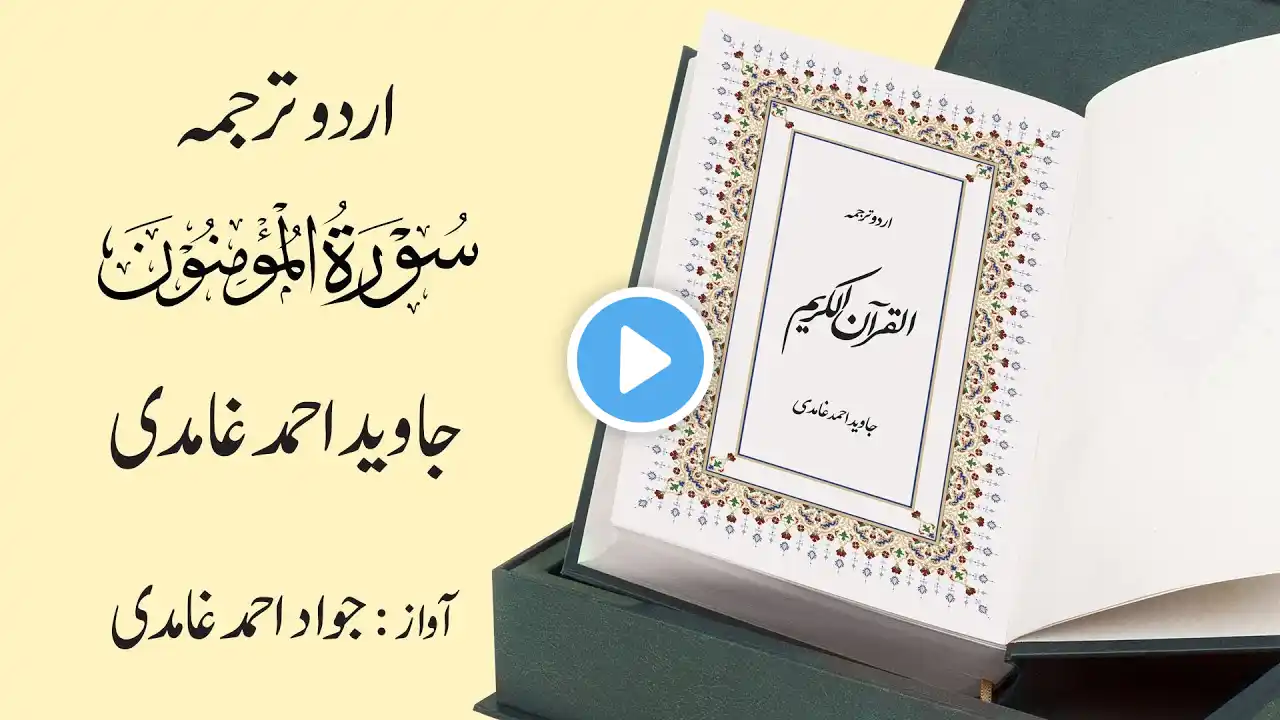 اردو ترجمہ
سُوْرَةُ الْمُؤْمِنُوْنَ
جاوید احمد غامدی
آواز : جواد احمد غامدی
اردو ترجمہ
القرآن الکریم
جاوید احمد غامدی